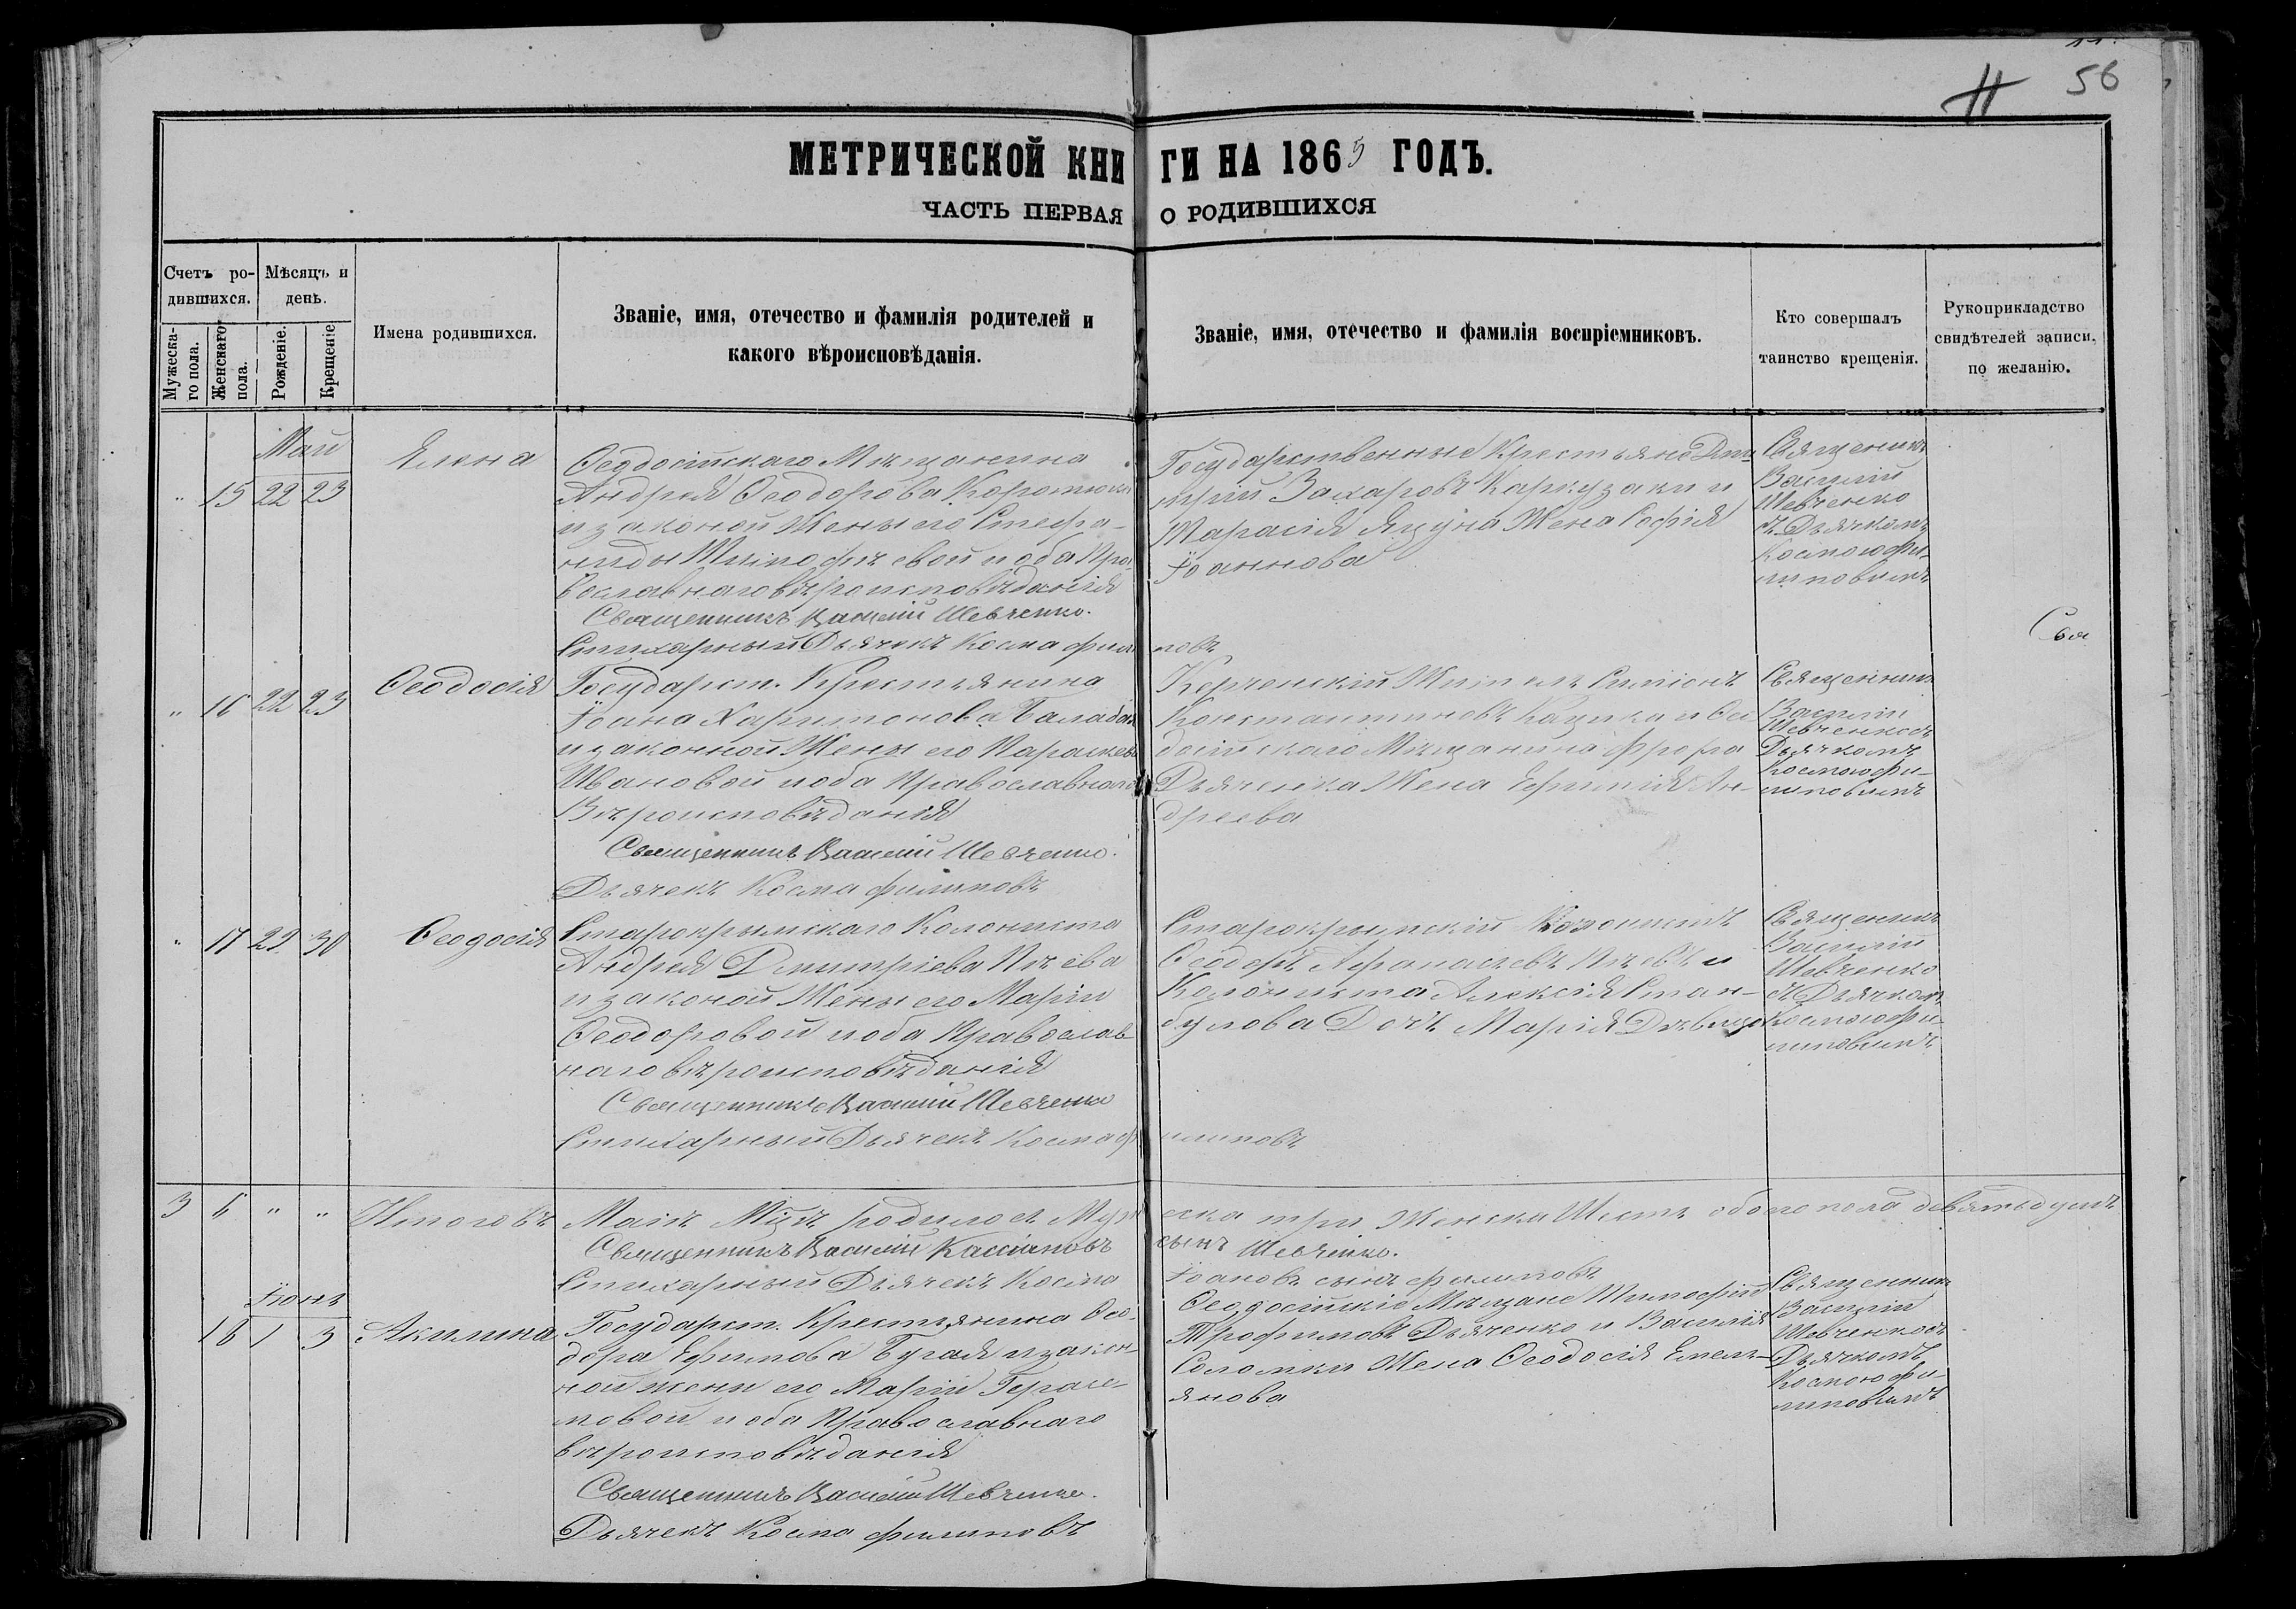 11
56
МЕТРИЧЕСКОЙ КНИГИ НА 1865 ГОДЪ.
ЧАСТЬ ПЕРВАЯ О РОДИВШИХСЯ
Счетъ ро-
дившихся.
Мѣсяцъ и
день.
Мужеска-
го пола.
Женскаго
пола.
Рожденіе.
Крещеніе
Имена родившихся.
Званіе, имя, отечество и фамилія родителей и
какого вѣроисповѣданія.
Званіе, имя, отечество и фамилія воспріемниковъ.
Кто совершалъ
таинство крещенія.
Рукоприкладство
свидѣтелей записи,
по желанію.
Май
" 15 22 23
Елена
Ѳеодосійскаго Мѣщанина
Андрея Ѳеодорова
и законой Жены его Стефа-
ниды Тимофѣевой и оба Пра
вославнаго вѣроисповѣданія
Священникъ Василій Шевченко.
Стихарный Дьячекъ Косма Фили
повъ
Государственные Крестьяне Дми
трій Захаровъ и
Тарасія Яцуна Жена Софія
Іоаннова
Священикъ
Василій
Шевченко
съ Дьячкомъ
Космою Фи-
липовымъ
Свя
" 16 22 23
Ѳеодосія
Государст. Крестьянина
Іоана Харитонова Балабан
и законной Жены его Параскевы
Ивановой и оба Православнаго
Вѣроисповѣданія
Священникъ Василій Шевченко.
Дьячекъ Косма Филиповъ
Керченскій Житель Симіонъ
Константиновъ и Ѳео
досійскаго Мѣщанина Фрора
Дьяченка Жена Ефимія Ан-
дреева
Священникъ
Василій
Шевченко съ
Дьячкомъ
Космою Фи-
липовымъ
" 17 29 30
Ѳеодосія
Старокрымскаго Колониста
Андрея Дмитріева
и законой Жены его Маріи
Ѳеодоровой и оба Православ-
наго вѣроисповѣданія
Священникъ Василій Шевченко
Стихарный Дьячекъ Косма Ф
илиповъ
Старокрымскій Колонистъ
Ѳеодоръ Афанасьевъ и
Колониста Алексія Стан-
булова Дочь Марія Дѣвица
Священикъ
Василій
Шевченко
съ Дьячком
Космою Фи-
липовымъ
3 6 " "
Итого въ Маѣ Мцѣ родилось Муж
еска три Женска Шесть обоего пола девять душъ
Священникъ Василій Кассіановъ
сынъ Шевченко.
Стихарный Дьячекъ Косма
Іоановъ сынъ Филиповъ
Іюнь
18 1 3
Акилина
Государст. Крестьянина Ѳео-
дора Ефимова Бугая и закон-
ной жены его Маріи Гераси-
мовой и оба Православнаго
вѣроисповѣданія
Священникъ Василій Шевченко.
Дьячекъ Косма Филиповъ
Ѳеодосійскіе Мѣщане Тимофей
Трофимовъ Дьяченко и Василія
Соломки Жена Ѳеодосія Емель-
янова
Священникъ
Василій
Шевченко съ
Дьячкомъ
Космою Фи-
липовымъ